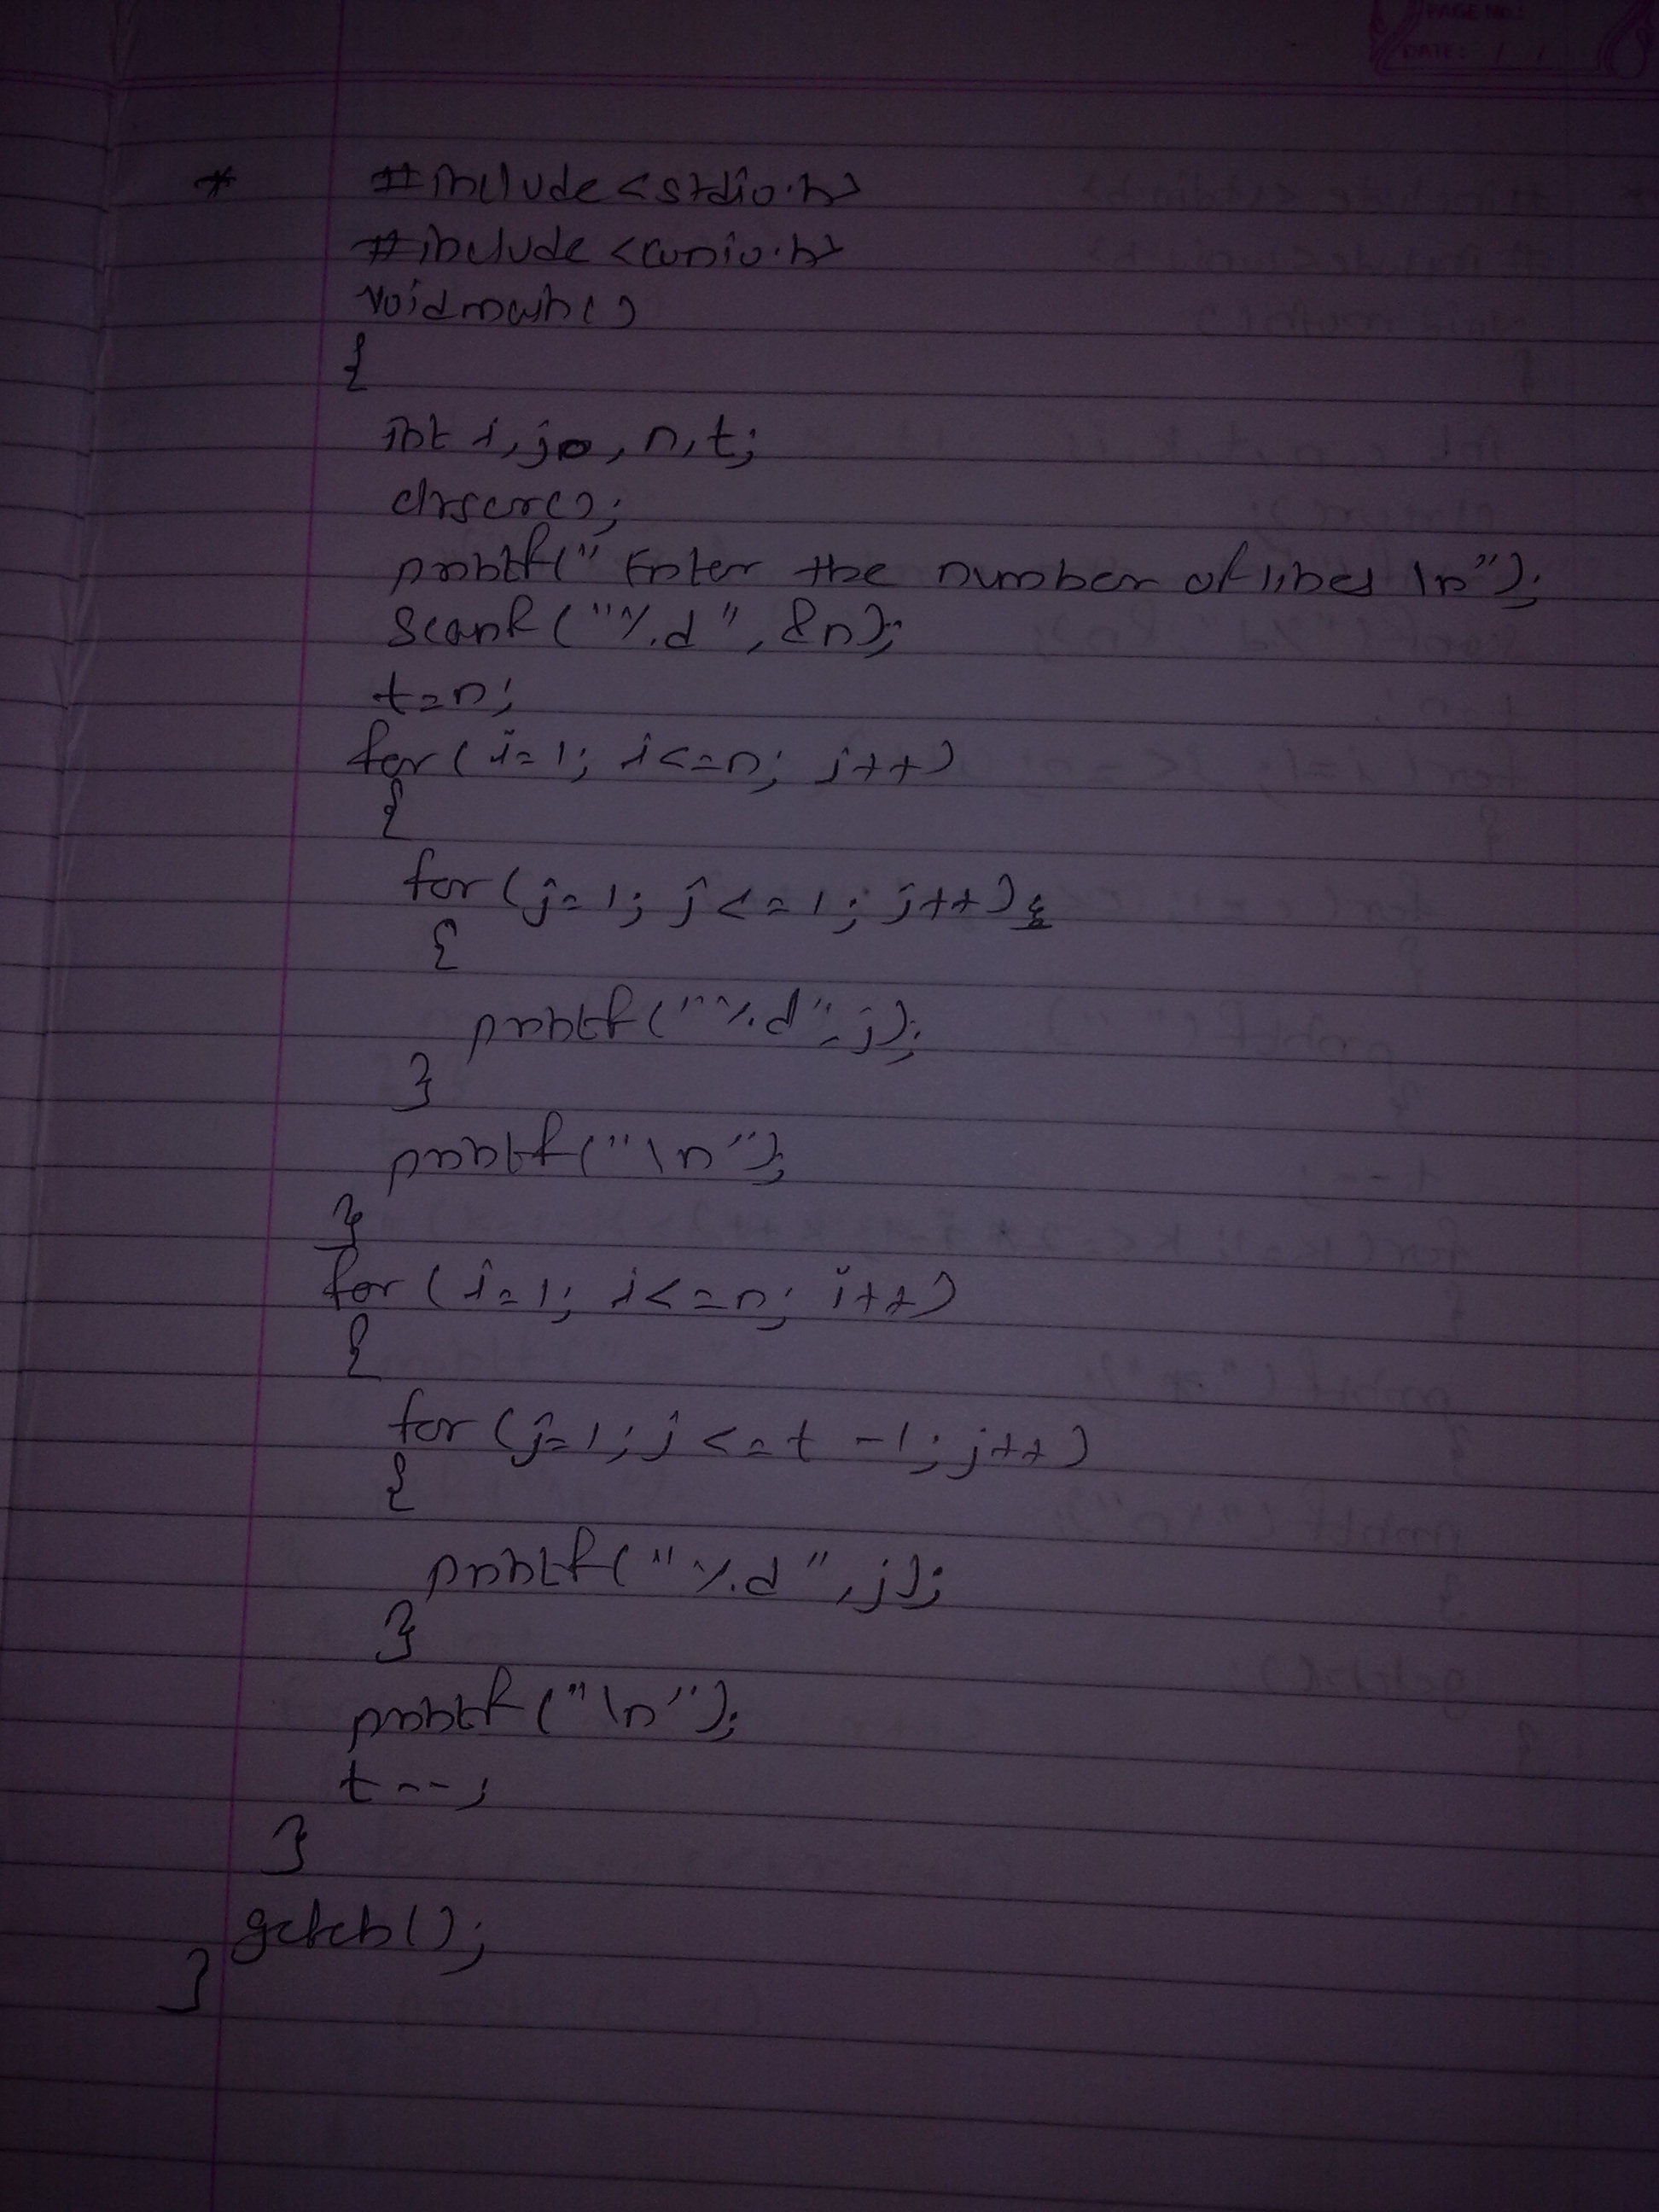 PAGE NO.:
DATE: / /
* #include<stdio.h>
#include<conio.h>
void main()
{
int i,j,n,t;
clrscr();
printf(" Enter the number of lines \n");
scanf("%d", &n);
t=n;
for(i=1; i<=n; i++)
{
for(j=1; j<=1; j++)
{
printf("%d", j);
}
printf("\n");
}
for(i=1; i<=n; i++)
{
for(j=1; j<=t-1; j++)
{
printf("%d", j);
}
printf("\n");
t--;
}
getch();
}